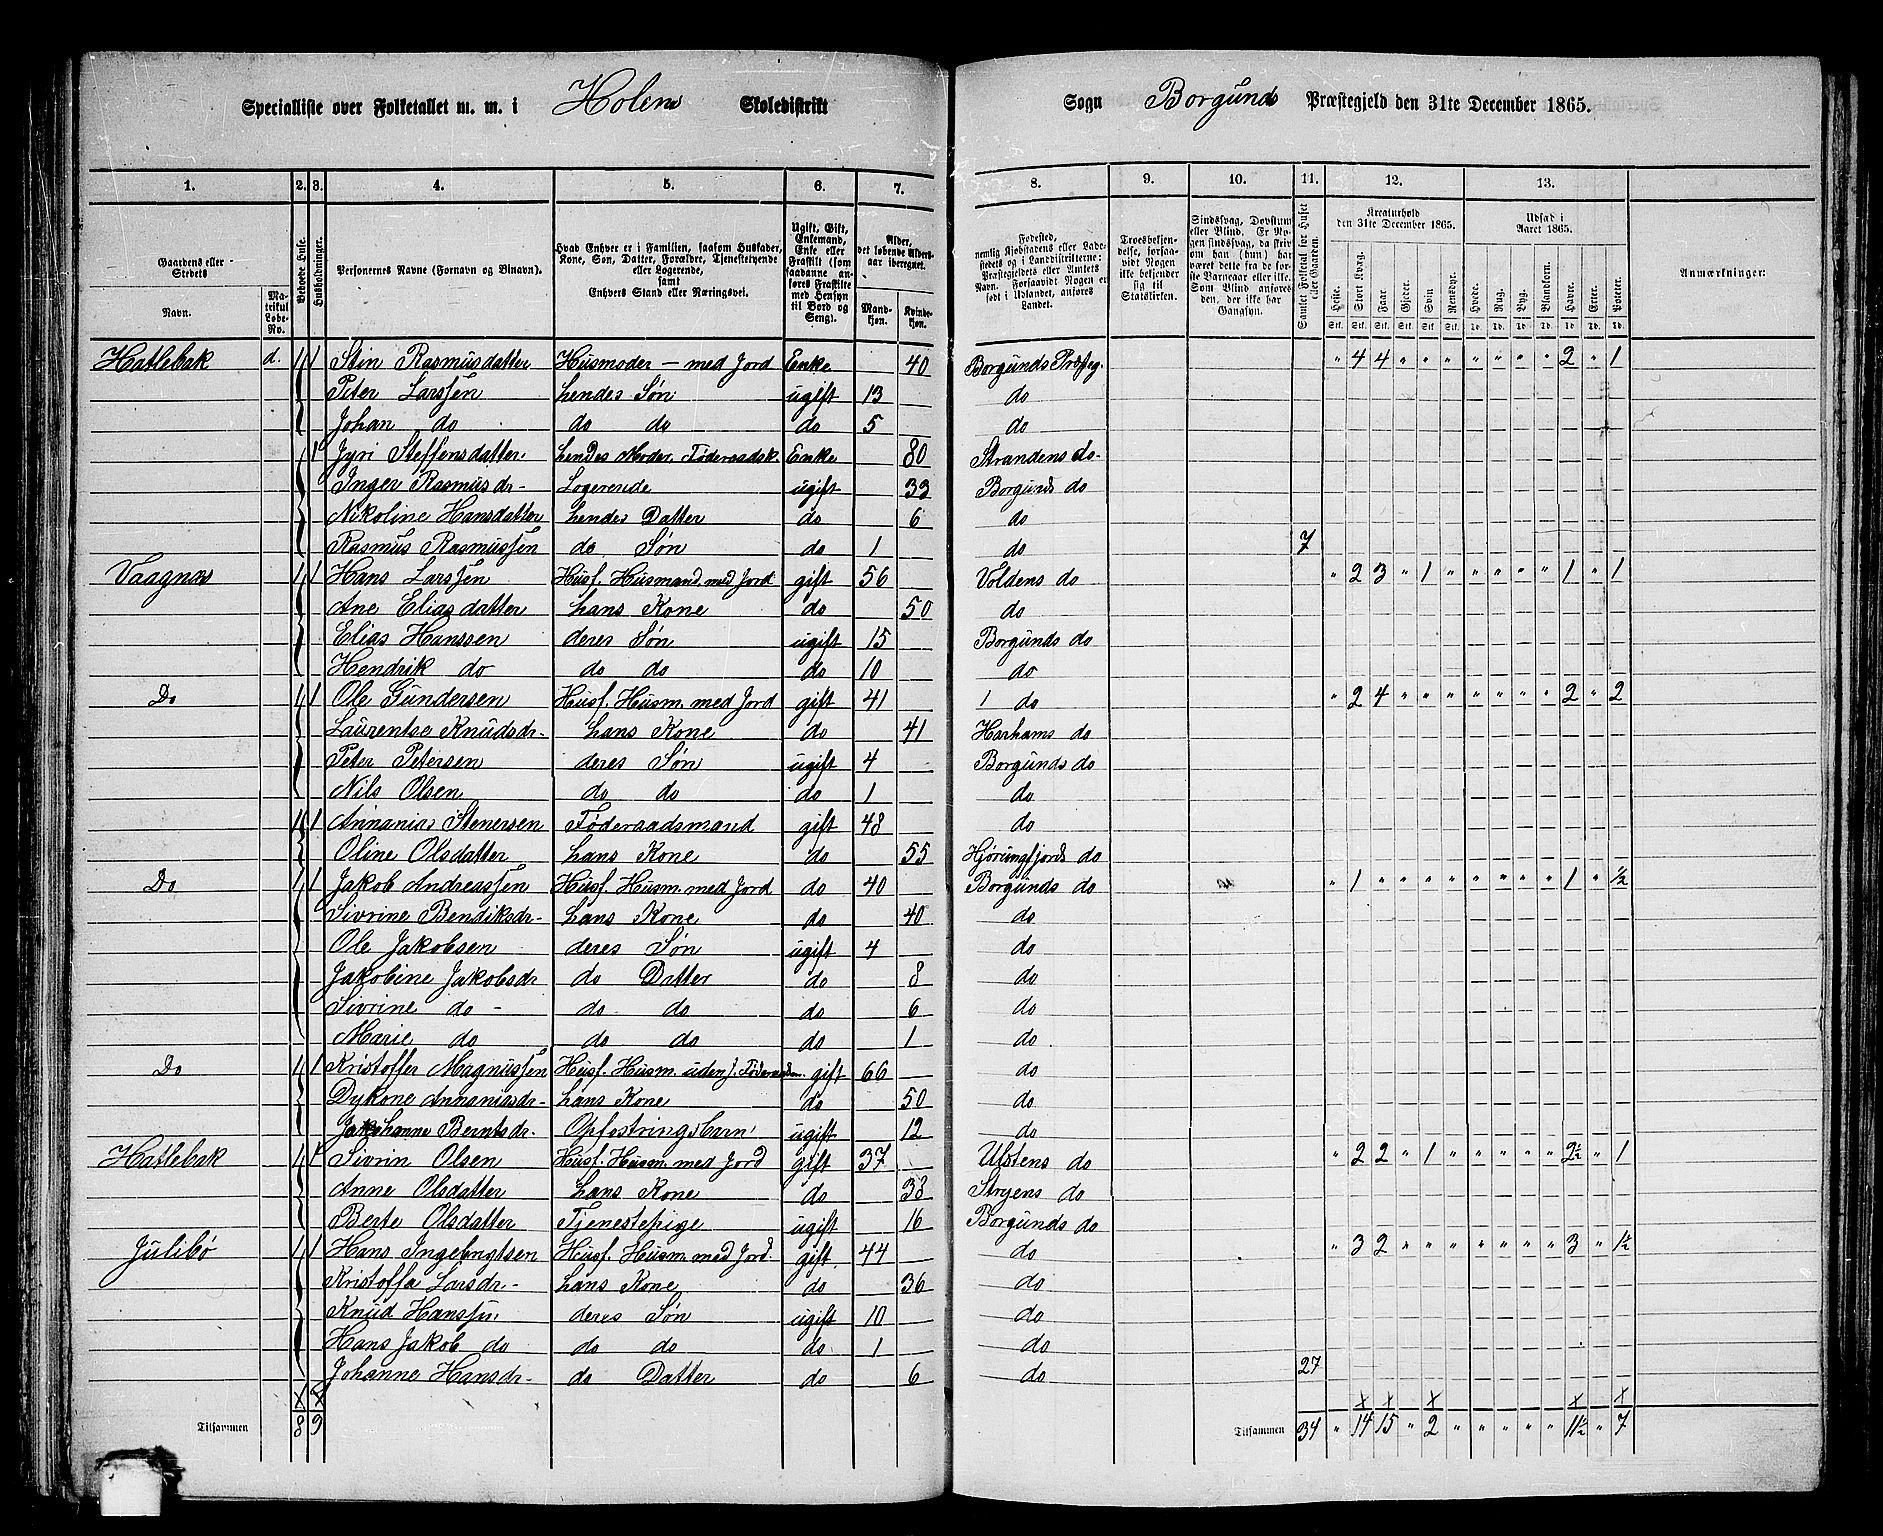 Specialliste over Folketallet m. m. i Holens Skoledistrikt Sogn Borgunds Præstegjeld den 31te December 1865.
1. 2. 3. 4. 5. 6. 7. 8. 9. 10. 11. 12. 13.
Gaardens eller Stedets Navn. Matrikul Løbe-No. Beboede Huse. Husholdninger. Personernes Navne (Fornavn og Binavn). Hvad Enhver er i Familien, saasom Husfader, Kone, Søn, Datter, Forælder, Tjenestetyende eller Logerende, samt Enhvers Stand eller Næringsvei. Ugift, Gift, Enkemand, Enke eller Fraskilt (som saadanne anføres Fraskilte med Hensyn til Bord og Seng). Alder, det løbende Alders-aar iberegnet. Mandkjøn. Kvindekjøn. Fødested, nemlig Kjøbstadens eller Ladestedets og i Landdistrikterne: Præstegjeldets eller Amtets Navn. Forsaavidt Nogen er født i Udlandet, anføres Landet. Troesbekjendelse, forsaavidt Nogen ikke bekjender sig til Statskirken. Sindssvag, Døvstum eller Blind. Er Nogen sindssvag, da skrives om han (hun) har været dette fra de første Barneaar eller ikke. Som Blind anføres den, der ikke har Gangsyn. Samlet Folketal for Huset eller Gaarden. Kreaturhold den 31te December 1865. Heste. Stort Kvæg. Faar. Gjeder. Svin Rensdyr. Udsæd i Aaret 1865. Hvede. Rug. Byg. Blandkorn. Havre. Erter. Poteter. Anmærkninger:
Hatlebak d. 1 1 Stin Rasmusdatter Husmoder — med Jord Enke 40 Borgunds Præsteg. " 4 4 " " " " " " " 2 " 1
Peter Larssen hendes Søn ugift 13 do
Johan do do do do 5 do
1 Jyri Steffensdatter hendes Moder, Føderaadsk. Enke 80 Strandens do
Inger Rasmusdr- Logerende ugift 33 Borgunds do
Nikoline Hansdatter hendes Datter do 6 do
Rasmus Rasmussen do Søn do 1 do 7
Vaagnæs 1 1 Hans Larssen Husf. Husmand med Jord gift 56 Voldens do " 2 3 " 1 " " " " " 1 " 1
Ane Eliasdatter hans Kone do 50 do
Elias Hanssen deres Søn ugift 15 Borgunds do
Hendrik do do do do 10 do
Do 1 1 Ole Gundersen Husf. Husm. med Jord gift 41 do " 2 4 " " " " " " " 2 " 2
Laurentse Knudsdr- hans Kone do 41 Harhams do
Peter Petersen deres Søn ugift 4 Borgunds do
Nils Olsen do do do 1 do
1 1 Annanias Stenersen Føderaadsmand gift 48 do
Oline Olsdatter hans Kone do 55 Hjørungfjords do
Do 1 1 Jakob Andreassen Husf. Husm. med Jord do 40 Borgunds do " 1 " " " " " " " " 1 " 1/2
Sivrine Bendiksdr- hans Kone do 40 do
Ole Jakobsen deres Søn ugift 4 do
Jakobine Jakobsdr do Datter do 8 do
Sivrine do - do do do 6 do
Marie do do do do 1 do
Do 1 1 Kristoffer Magnussen Husf. Husm. uden J. gift 66 do
Dykone Annaniasdr- hans Kone do 50 do
Johanne Berntsdr. Opfostringsbarn ugift 12 do
Hatlebak 1 1 Sivrin Olsen Husf. Husm. med Jord gift 37 Ulstens do " 2 2 " 1 " " " " " 2 1/2 " 1
Anne Olsdatter hans Kone do 38 Stryens do
Berte Olsdatter Tjenestepige ugift 16 Borgunds do
Julibø 1 1 Hans Ingebrigtsen Husf. Husm. med Jord. gift 44 do " 3 2 " " " " " " " 3 " 1 1/2
Kristoffa Larsdr- hans Kone do 36 do
Knud Hanssen deres Søn ugift 10 do
Hans Jakob do do do do 1 do
Johanne Hansdr- do Datter do 6 do 27
x x x x x x x
Tilsammen 8 9 Tilsammen 34 " 14 15 " 2 " " " " " 11 1/2 " 7